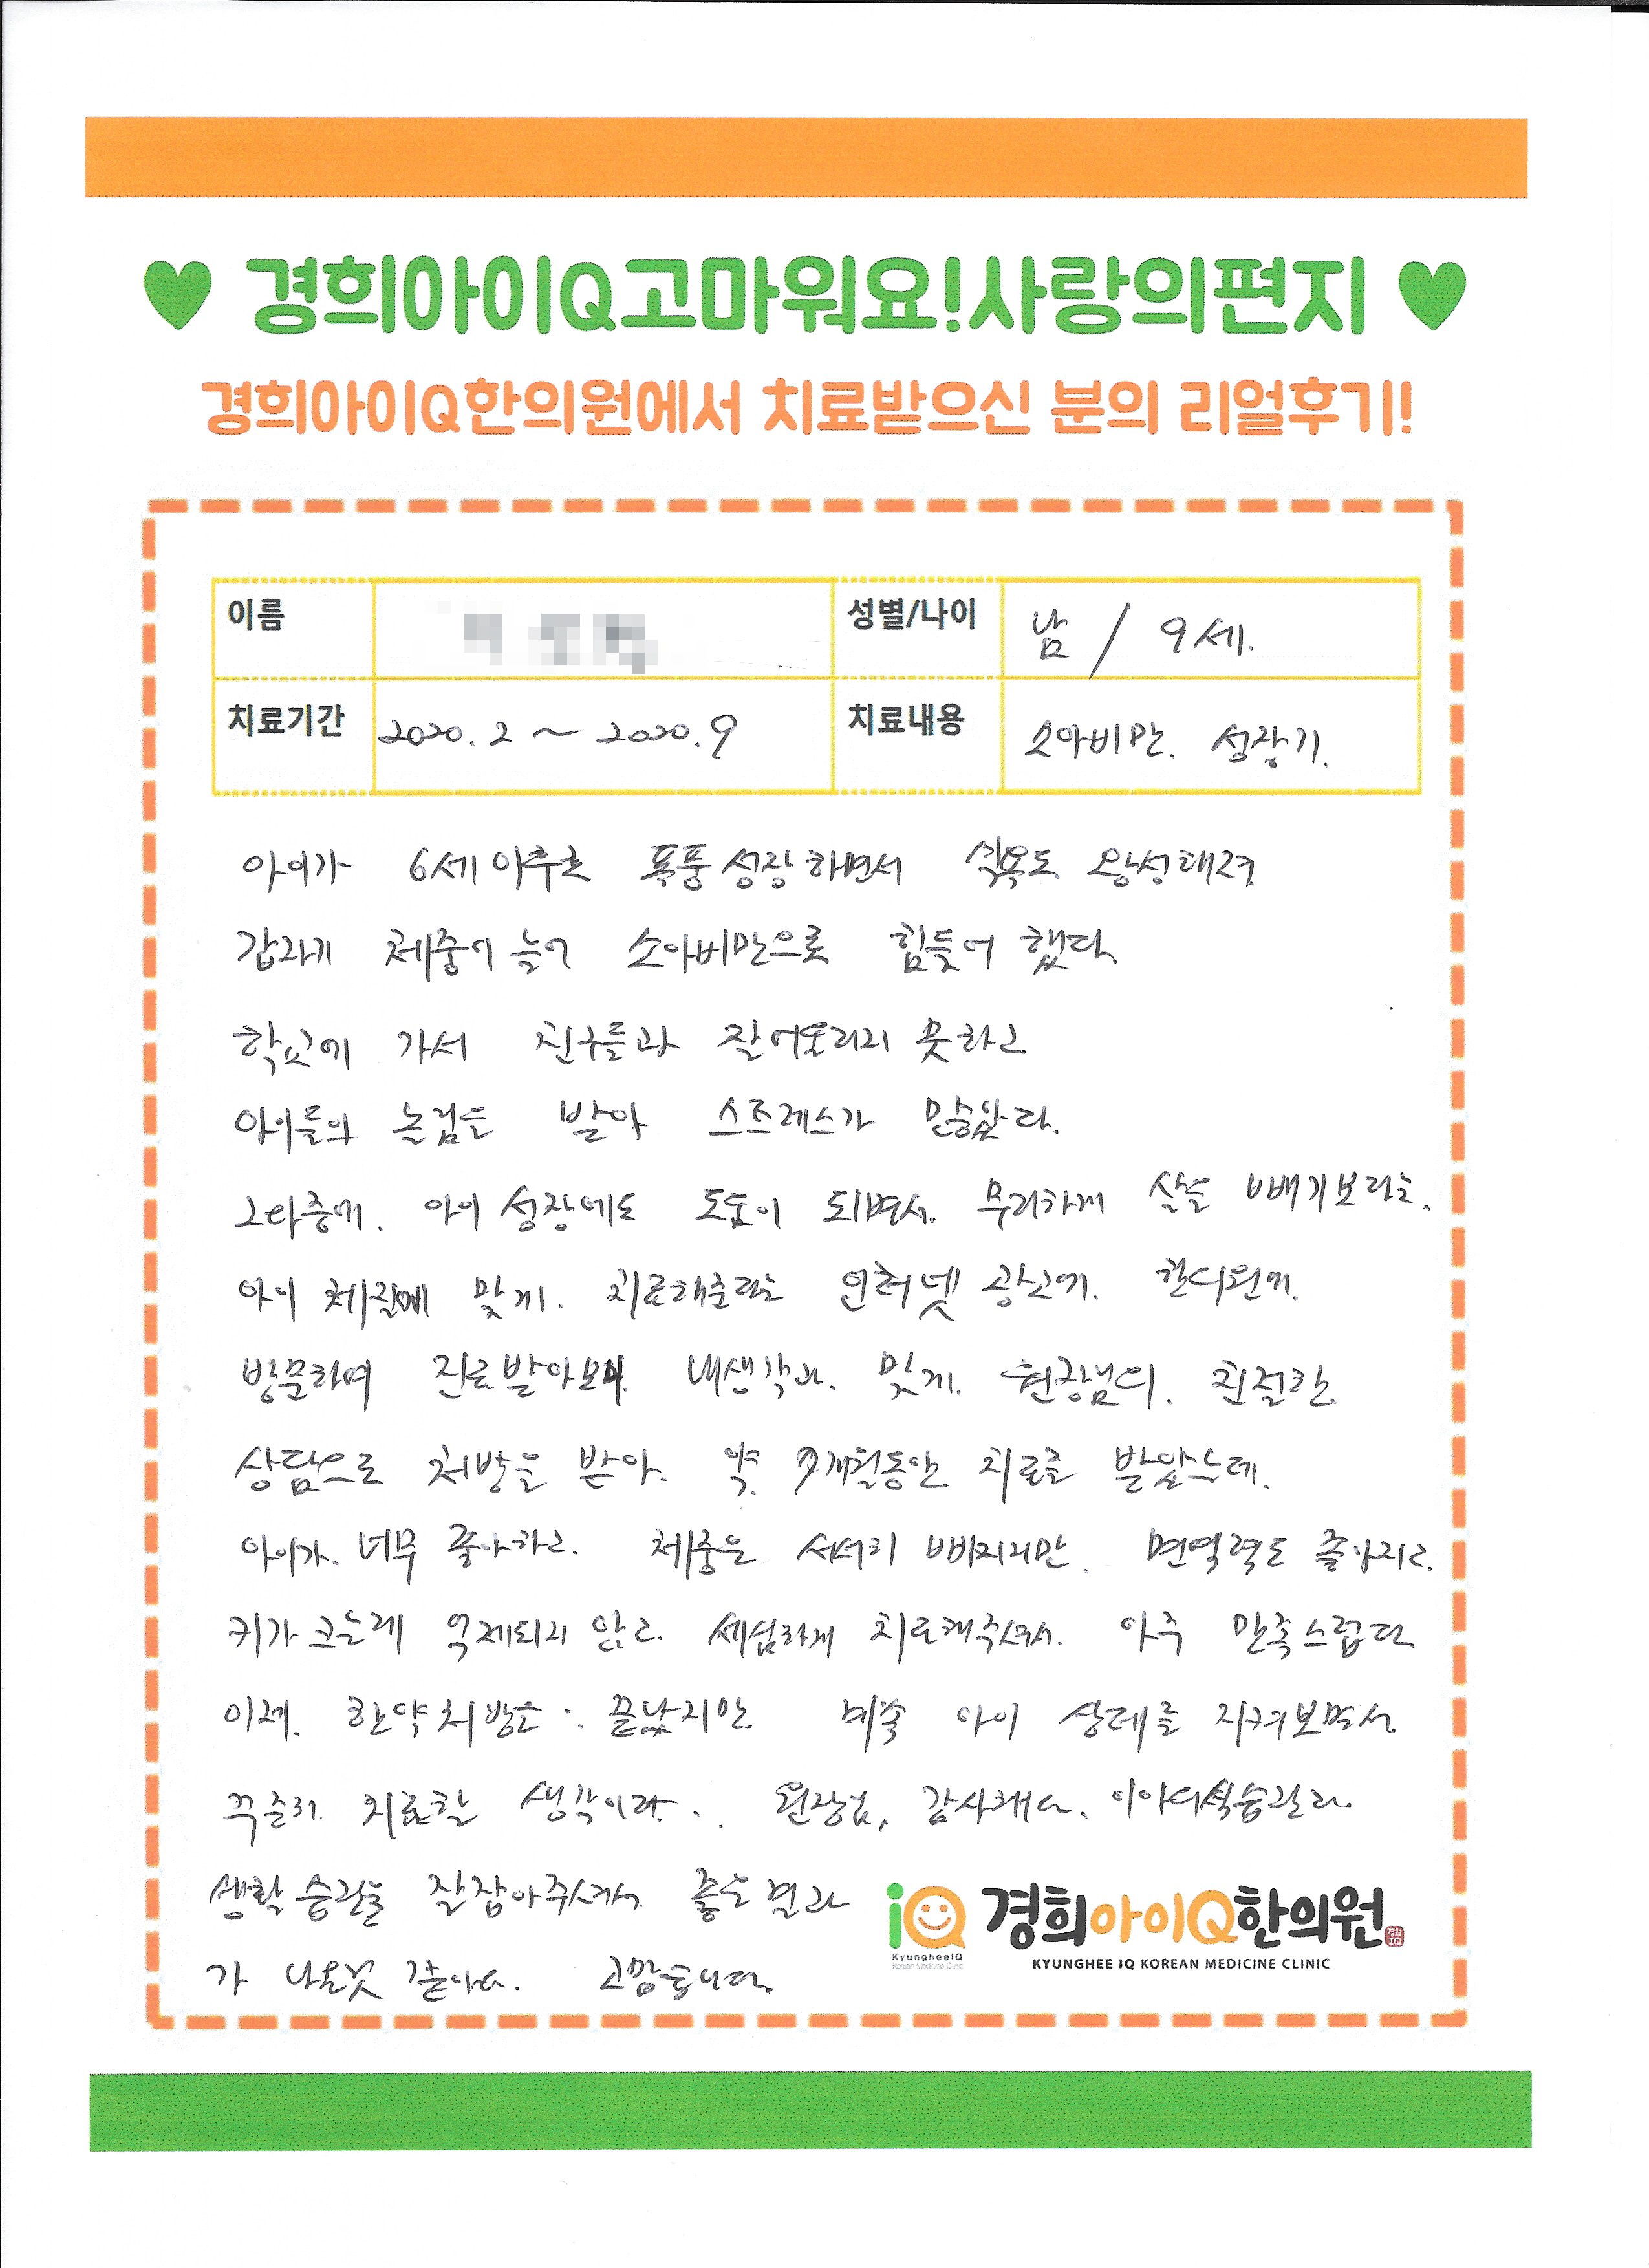 경희아이Q고마워요!사랑의편지
경희아이Q한의원에서 치료받으신 분의 리얼후기!
이름
성별/나이 남 / 9세.
치료기간 2020. 2 ~ 2020. 9
치료내용 소아비만. 성장기.
아이가 6세이후로 폭풍성장하면서 식욕도 왕성해져
갑자기 체중이 늘어 소아비만으로 힘들어 했다.
학교에 가서 친구들과 잘어울리지 못하고
아이들의 놀림을 받아 스트레스가 많았다.
그러중에. 아이 성장에도 도움이 되면서. 무리하게 살을 빼기보다는.
아이 체질에 맞게. 치료해준다는 인터넷 광고에. 한의원에.
방문하여 진료받아보니. 내생각과. 맞게. 원장님의. 친절한
상담으로 처방을 받아. 약. 7개월동안 치료를 받았는데.
아이가. 너무 좋아하고. 체중은 서서히 빠지지만. 면역력도 좋아지고.
키가 크는데 억제되지 않고. 세심하게 치료해주셔서. 아주 만족스럽다
이제. 한약처방은. 끝났지만 계속 아이 상태를 지켜보면서
꾸준히 치료할 생각이다. 원장님, 감사해요. 아이식습관과
생활습관을 잘잡아주셔서 좋은결과
가 나온것 같아요. 고맙습니다.
iQ KyungheeIQ Korean Medicine Clinic
경희아이Q한의원
KYUNGHEE IQ KOREAN MEDICINE CLINIC